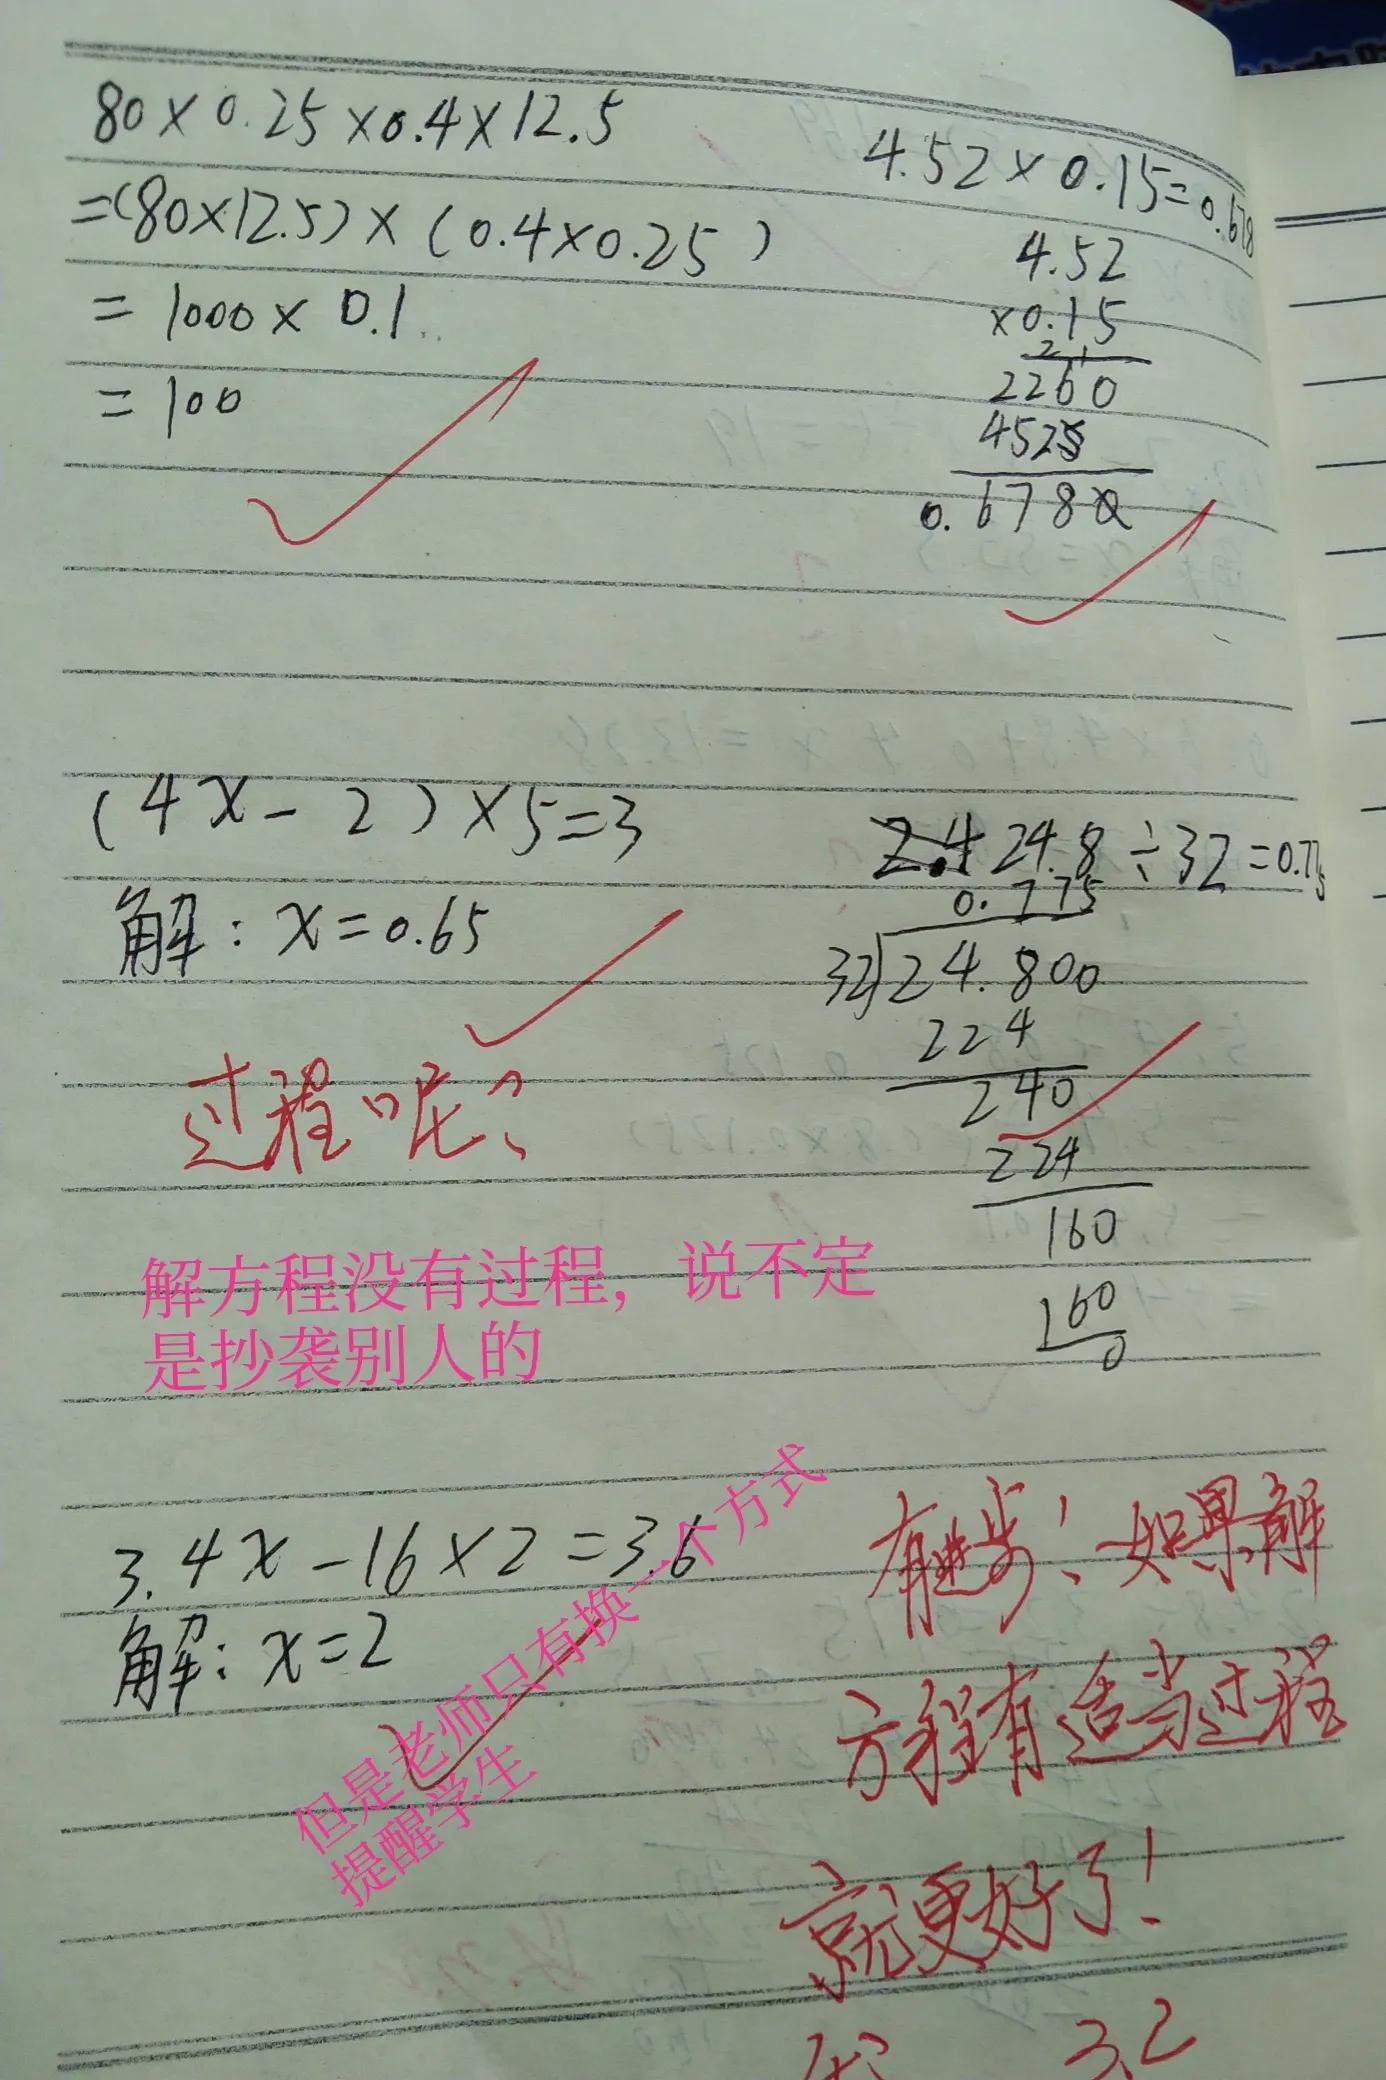 80×0.25×0.4×12.5
=(80×12.5)×(0.4×0.25)
=1000×0.1
=100
4.52×0.15=0.678
4.52
×0.15
21
2260
452
0.6780
(4x-2)×5=3
解:x=0.65
过程呢?
24.8÷32=0.775
0.775
32 24.800
224
240
224
160
160
0
解方程没有过程，说不定
是抄袭别人的
3.4x-16×2=3.6
解:x=2
但是老师只有换一个方式
提醒学生
有进步!如果解
方程有适当过程
就更好了!
3.2